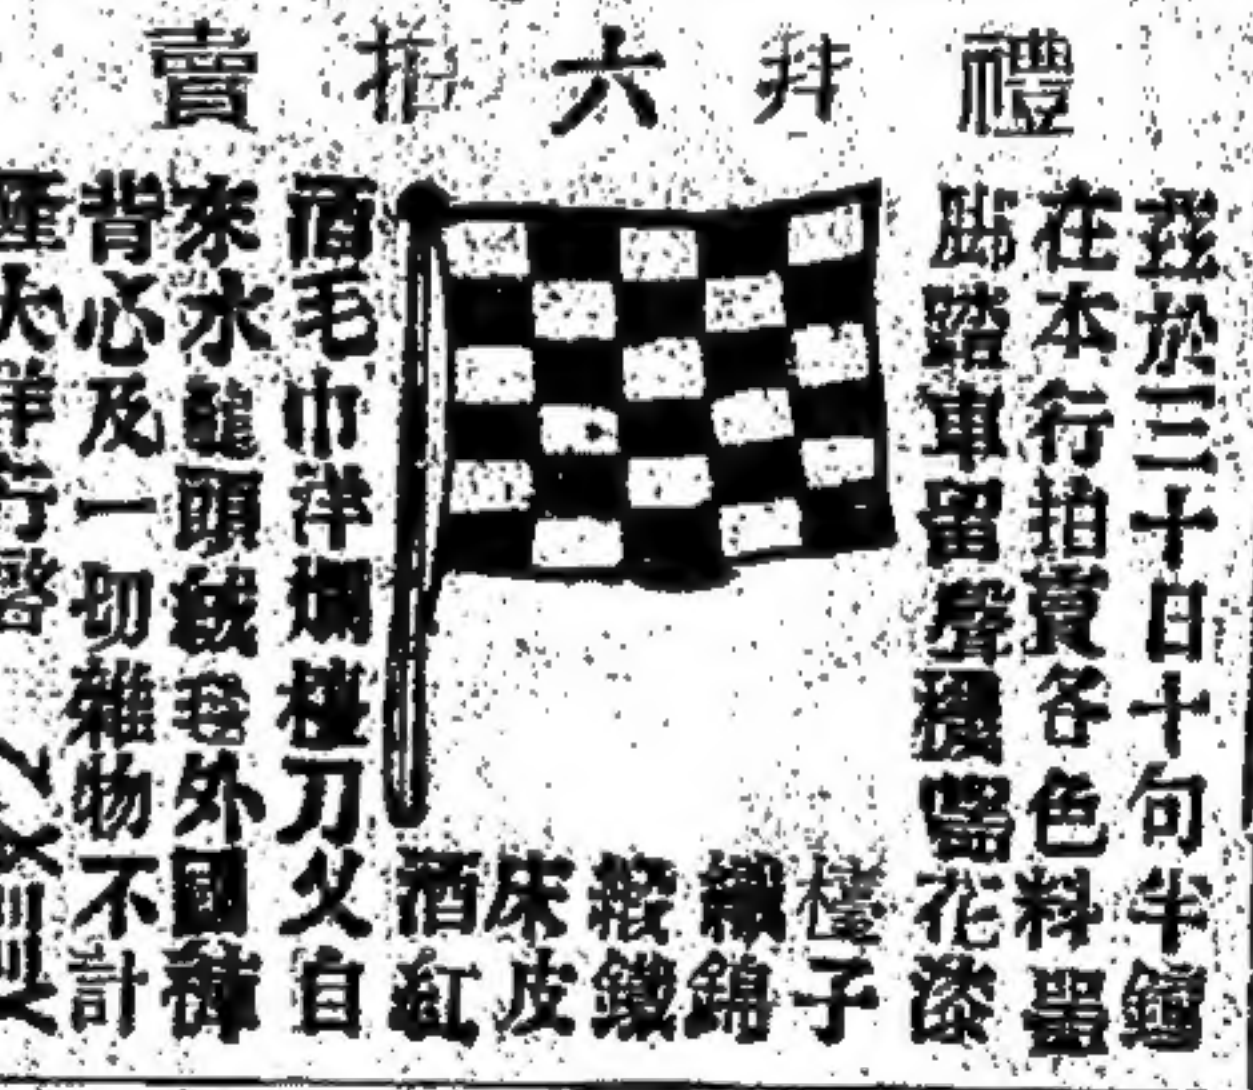 禮拜六拍賣
茲於三十日十句半鐘
在本行拍賣各色料器
脚踏車留聲機器花漆
檯子
織錦
緞鐵
床皮
酒紅
酒毛巾洋烟檯刀叉自
來水龍頭絨外國褲
背心及一切雜物不計
大洋行啓